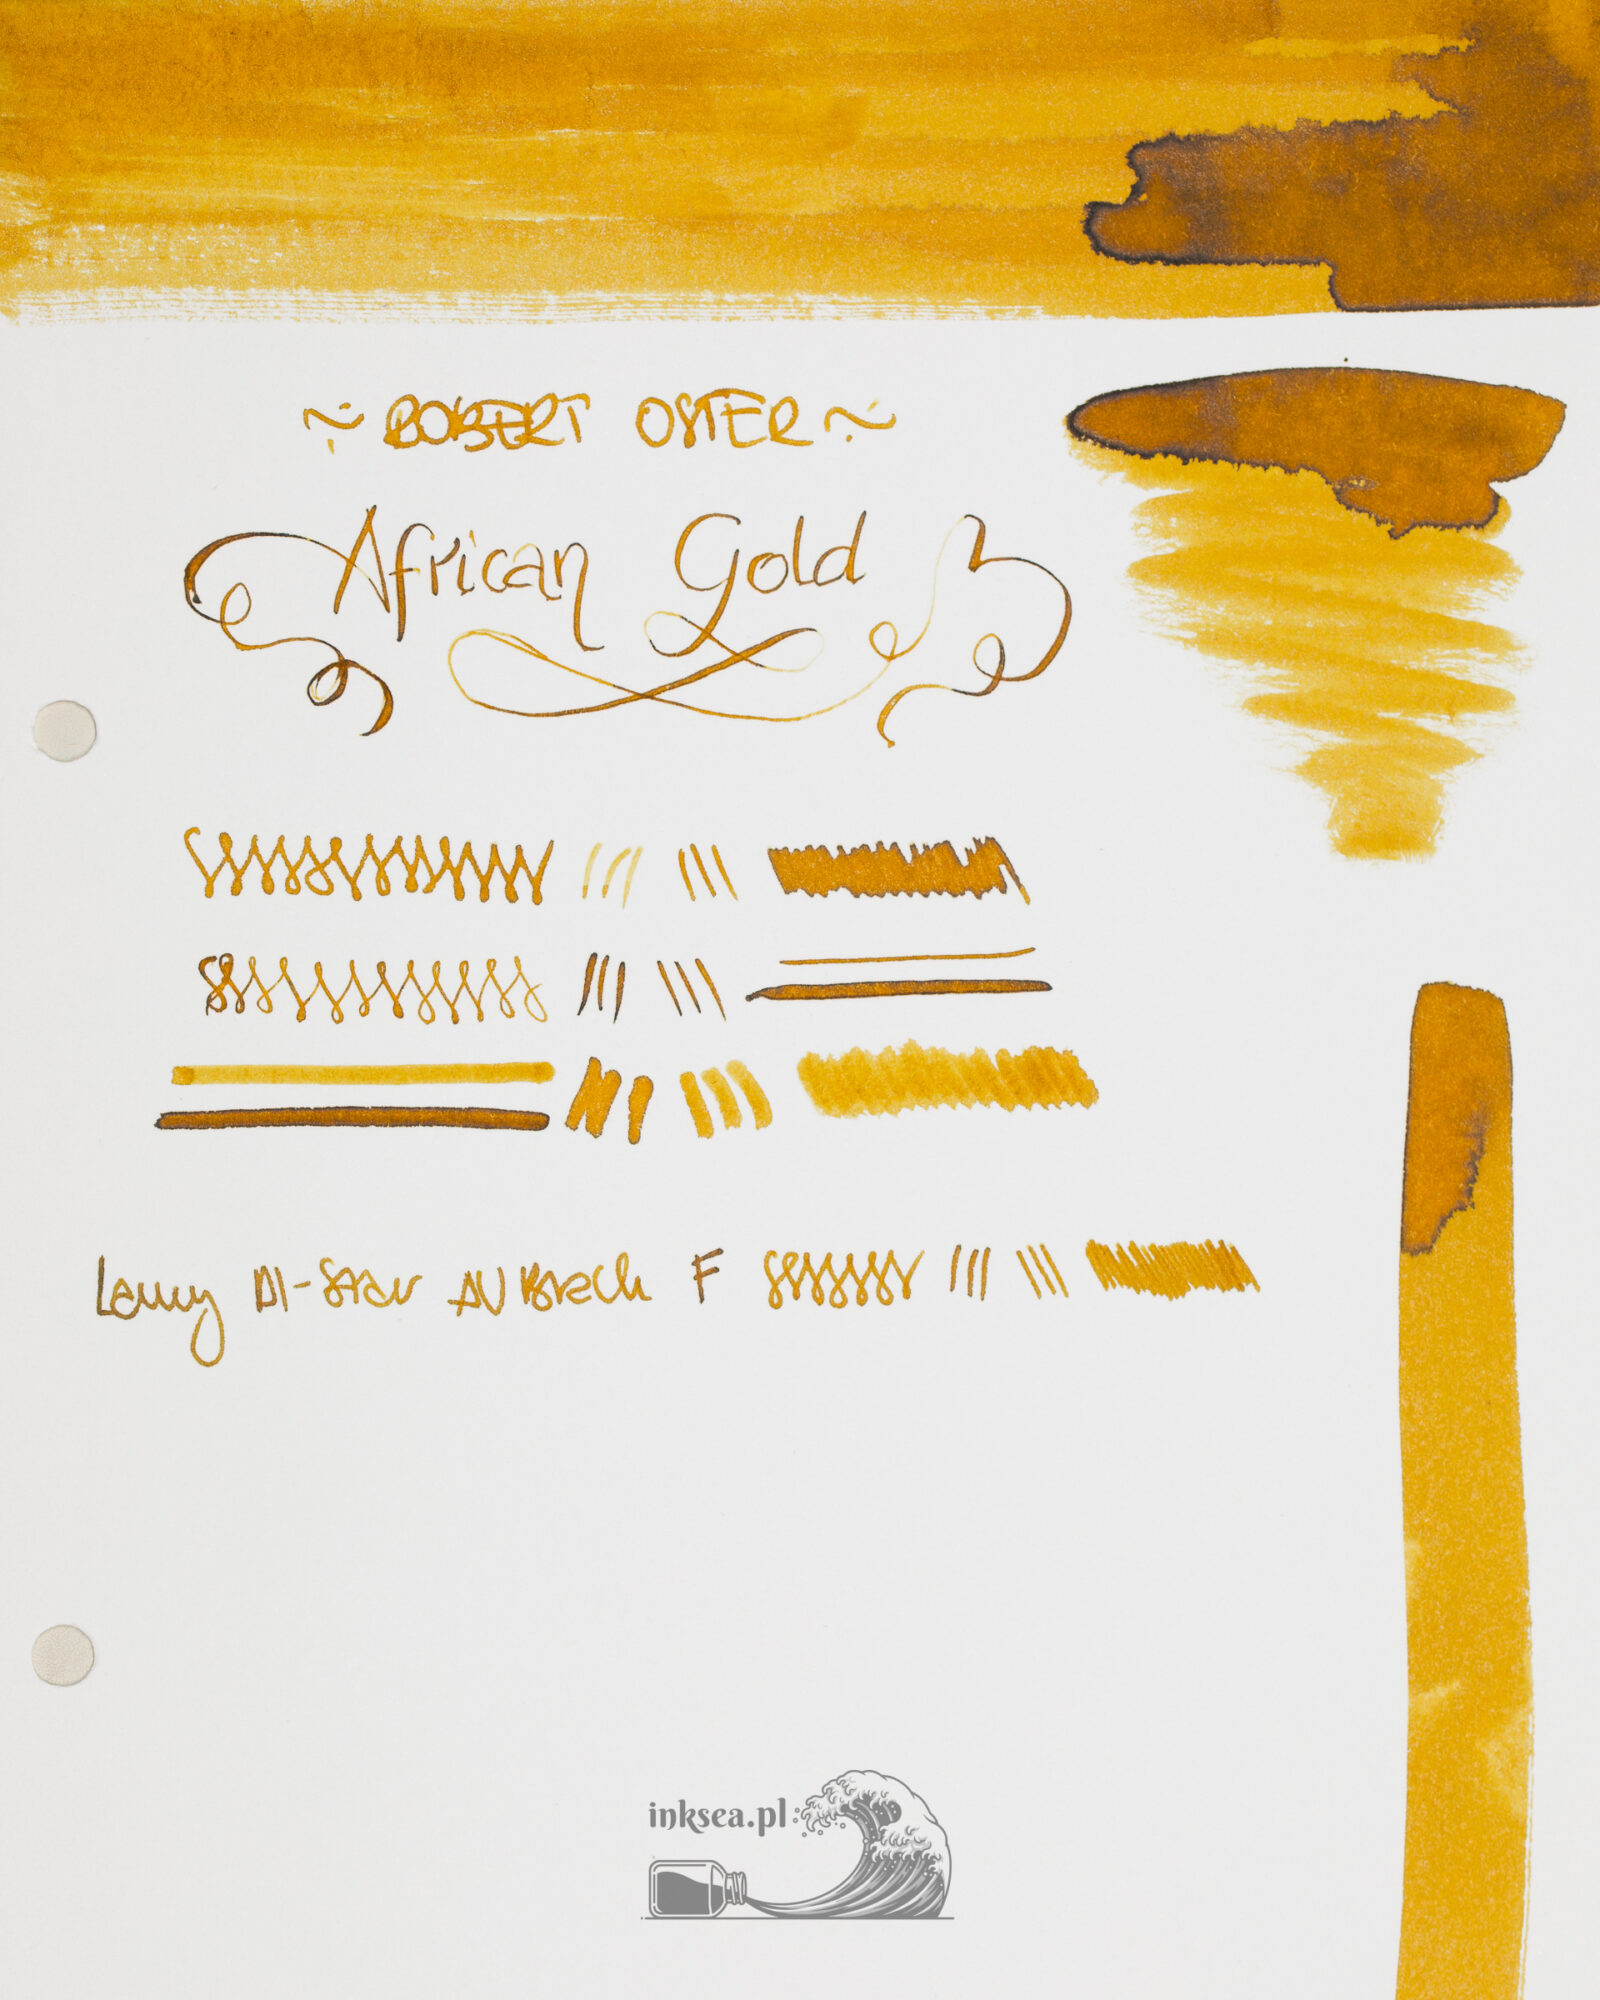 ~ ROBERT OSTER ~
African Gold
Lamy Al-Star F
inksea.pl